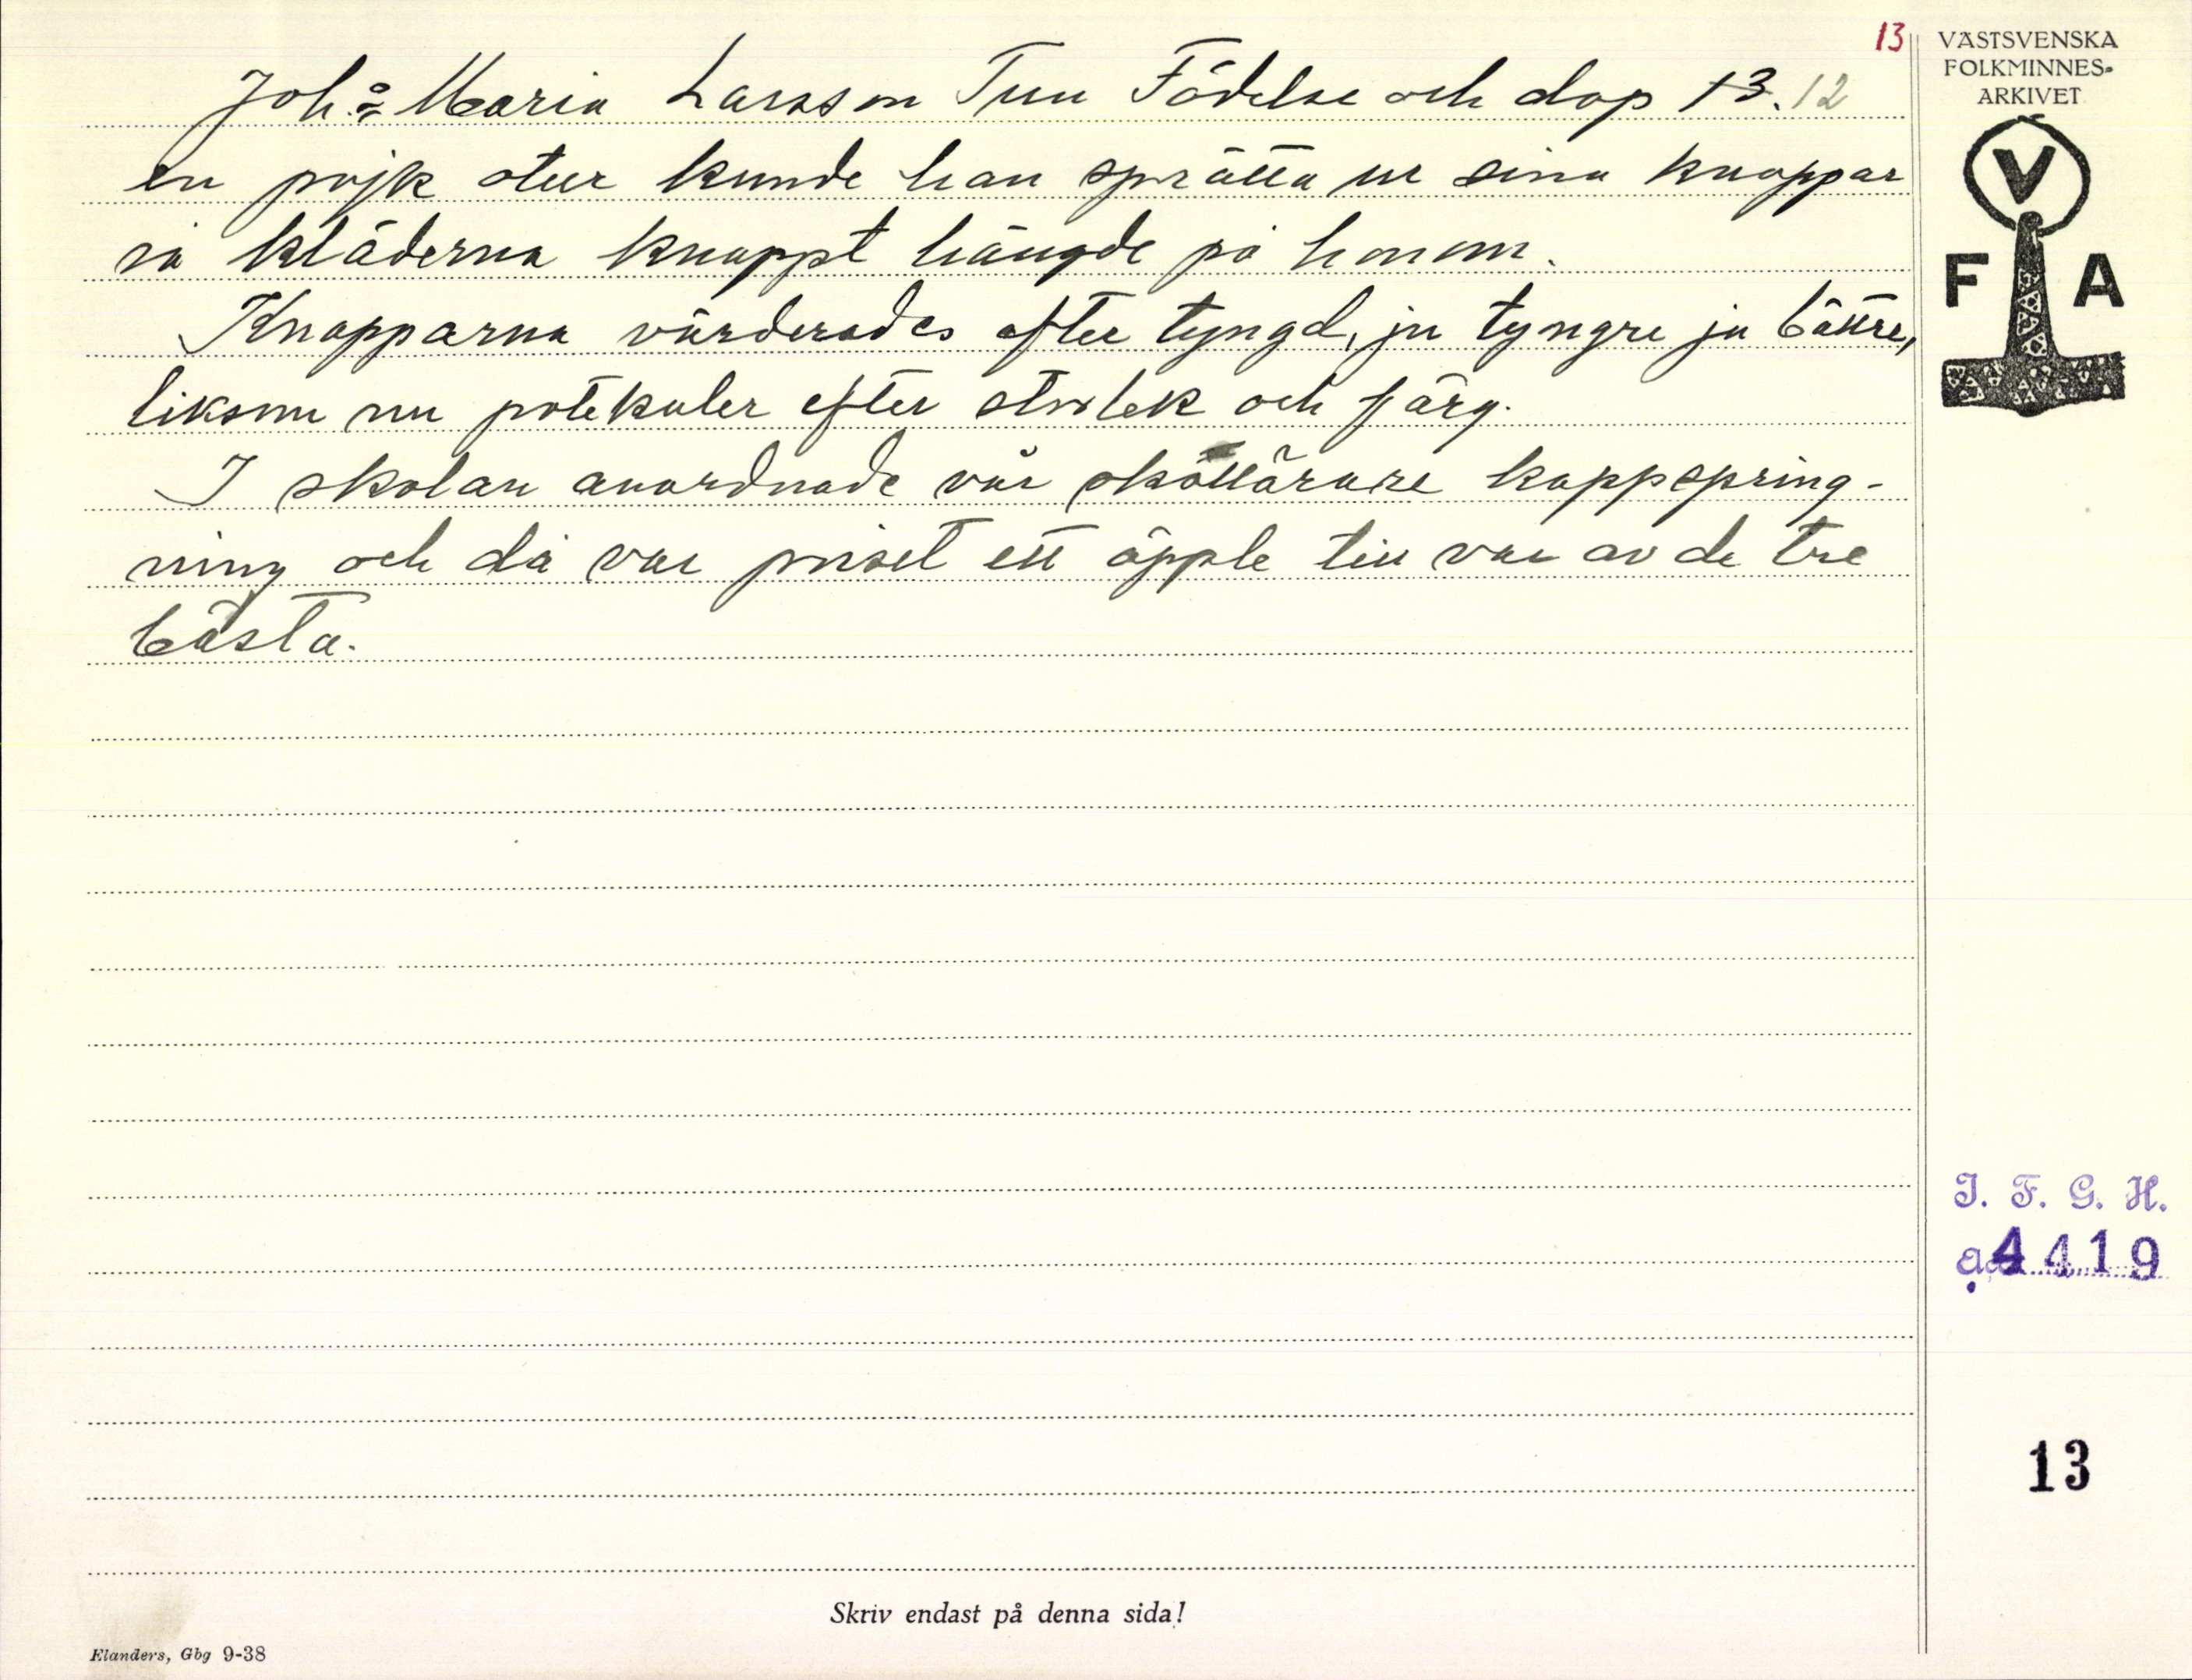 13
VÄSTSVENSKA
FOLKMINNES-
ARKIVET
V
F A
Joh:a Maria Larsson Tun Födelse och dop 13. 12
en pojk otur kunde han sprätta ur sina knappar
så kläderna knappt hängde på honom.
Knapparna värderades efter tyngd, ju tyngre ju bättre,
liksom nu potekuler efter storlek och färg.
I skolan anordnade vår skollärare kappspring-
ning och då var priset ett äpple till var av de tre
bästa.
I. F. G. H.
4419
13
Skriv endast på denna sida!
Elanders, Gbg 9-38